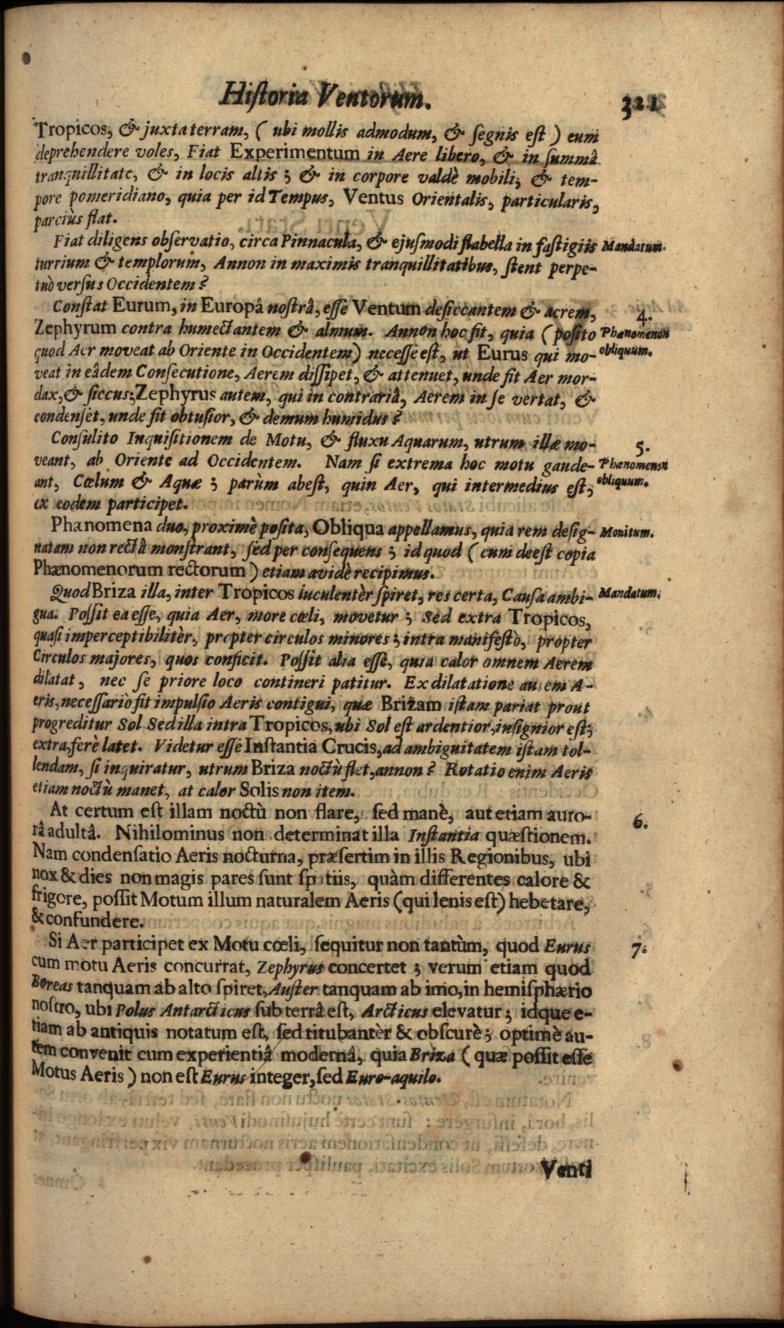 Historia Ventorum. 321
Tropicos, & juxta terram, ( ubi mollis admodum, & segnis est ) eum
deprehendere voles, Fiat Experimentum in Aere libero, & in summâ
tranquillitate, & in locis altis ; & in corpore valdè mobili, & tem-
pore pomeridiano, quia per id Tempus, Ventus Orientalis, particularis,
parcius flat.
Fiat diligens observatio, circa Pinnacula, & ejusmodi flabella in fastigiis
Mandatum.
turrium & templorum, Annon in maximis tranquillitatibus, stent perpe-
tuò versus Occidentem ?
Constat Eurum, in Europâ nostrâ, esse Ventum desiccantem & acrem,
4.
Zephyrum contra humectantem & almum. Annon hoc fit, quia ( posito
Phænomenon
quod Aer moveat ab Oriente in Occidentem) necesse est, ut Eurus qui mo-
obliquum.
veat in eâdem Consecutione, Aerem dissipet, & attenuet, unde fit Aer mor-
dax, & siccus; Zephyrus autem, qui in contrariâ, Aerem in se vertat, &
condenset, unde fit obtusior, & demum humidus ?
Consulito Inquisitionem de Motu, & fluxu Aquarum, utrum illæ mo-
5.
veant, ab Oriente ad Occidentem. Nam si extrema hoc motu gaude-
Phænomenon
ant, Cœlum & Aquæ ; parùm abest, quin Aer, qui intermedius est,
obliquum.
ex eodem participet.
Phænomena duo, proximè posita, Obliqua appellamus, quia rem desig-
Monitum.
natam non rectâ monstrant, sed per consequens ; id quod ( cum deest copia
Phænomenorum rectorum ) etiam avidè recipimus.
Quod Briza illa, inter Tropicos luculentèr spiret, res certa, Causa ambi-
Mandatum.
gua. Possit ea esse, quia Aer, more cœli, movetur ; Sed extra Tropicos,
quasi imperceptibilitèr, propter circulos minores ; intra manifestò, propter
Circulos majores, quos conficit. Possit alia esse, quia calor omnem Aerem
dilatat, nec se priore loco contineri patitur. Ex dilatatione autem A-
eris, necessariò fit impulsio Aeris contigui, quæ Brizam istam pariat prout
progreditur Sol Sed illa intra Tropicos, ubi Sol est ardentior, insignior est;
extra, ferè latet. Videtur esse Instantia Crucis, ad ambiguitatem istam tol-
lendam, si inquiratur, utrum Briza noctù flet, annon ? Rotatio enim Aeris
etiam noctù manet, at calor Solis non item.
At certum est illam noctù non flare, sed manè, aut etiam auro-
6.
râ adultâ. Nihilominus non determinat illa Instantia quæstionem.
Nam condensatio Aeris nocturna, præsertim in illis Regionibus, ubi
nox & dies non magis pares sunt spatiis, quàm differentes calore &
frigore, possit Motum illum naturalem Aeris (qui lenis est) hebetare,
& confundere.
Si Aer participet ex Motu cœli, sequitur non tantùm, quod Eurus
7.
cum motu Aeris concurrat, Zephyrus concertet ; verum etiam quod
Boreas tanquam ab alto spiret, Auster tanquam ab imo, in hemisphærio
nostro, ubi Polus Antarcticus sub terrâ est, Arcticus elevatur ; idque e-
tiam ab antiquis notatum est, sed titubantèr & obscurè ; optimè au-
tem convenit cum experientiâ modernâ, quia Briza ( quæ possit esse
Motus Aeris ) non est Eurus integer, sed Euro-aquilo.
Venti